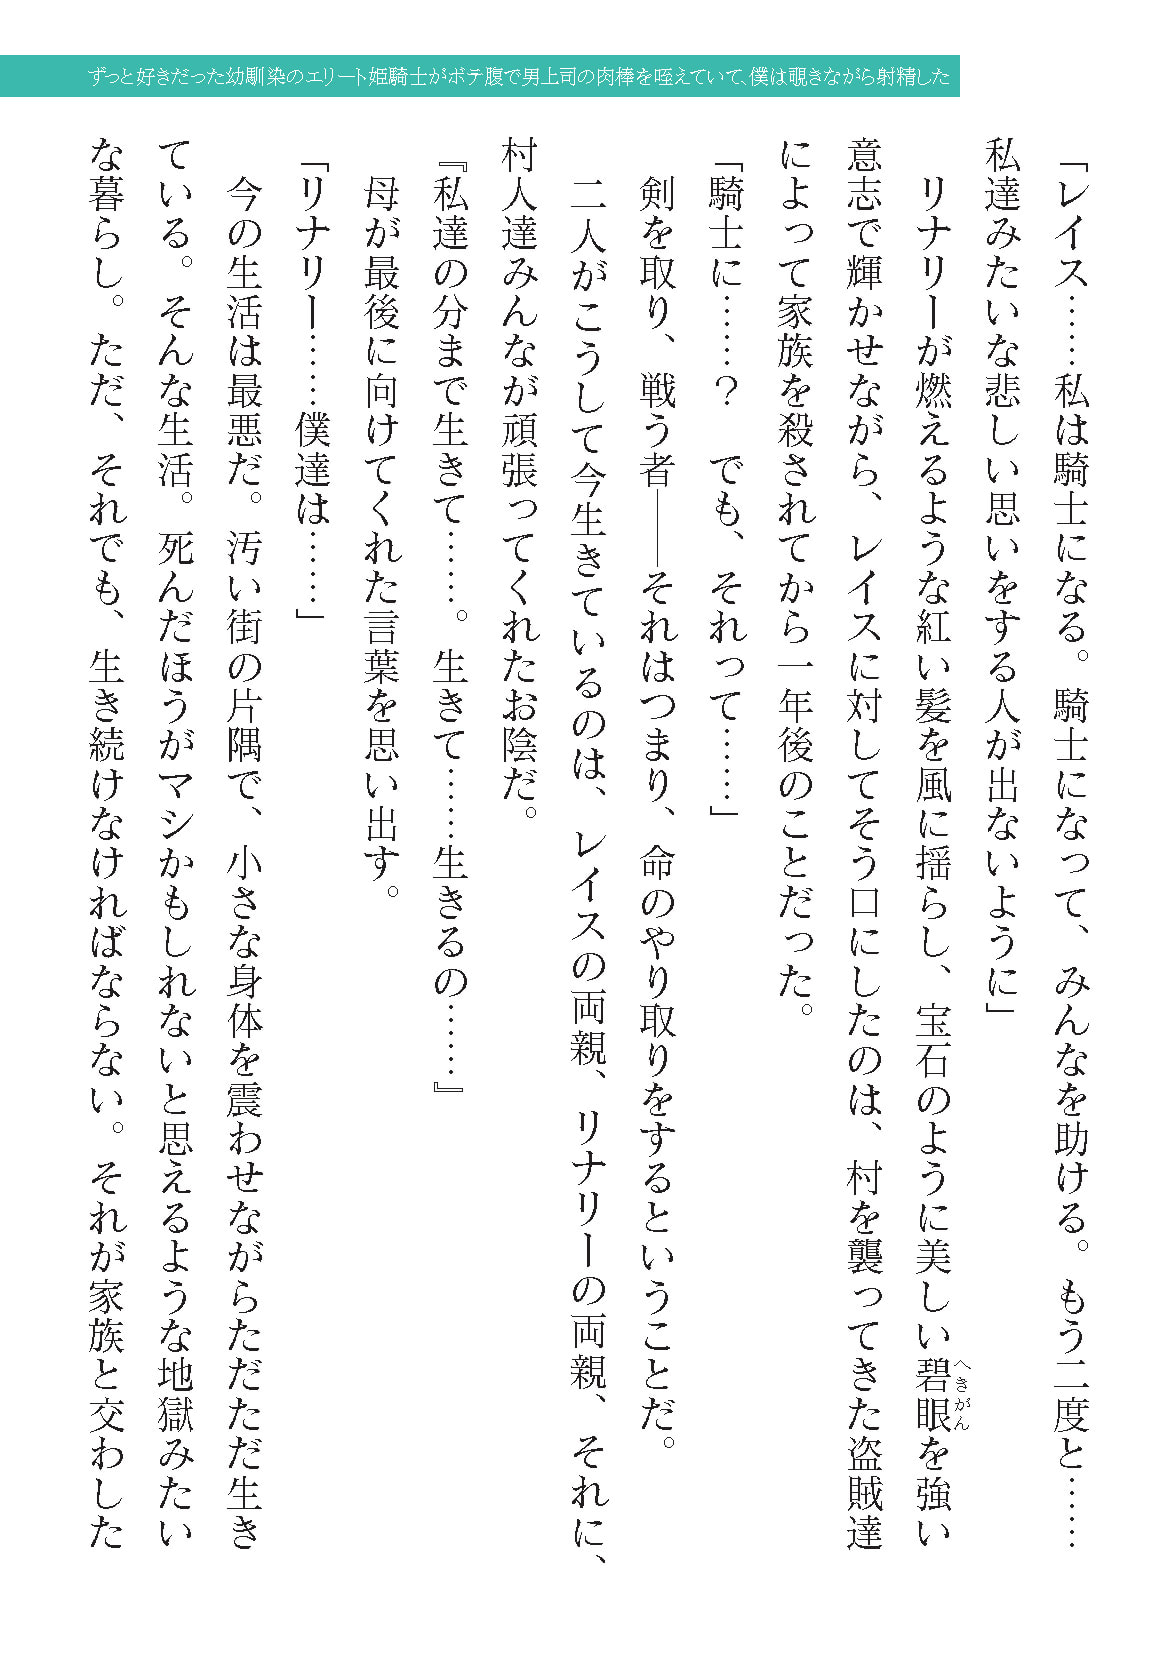 ずっと好きだった幼馴染のエリート姫騎士がボテ腹で男上司の肉棒を咥えていて、僕は覗きながら射精した
「レイス……私は騎士になる。騎士になって、みんなを助ける。もう二度と……
私達みたいな悲しい思いをする人が出ないように」
リナリーが燃えるような紅い髪を風に揺らし、宝石のように美しい碧眼を強い
へきがん
意志で輝かせながら、レイスに対してそう口にしたのは、村を襲ってきた盗賊達
によって家族を殺されてから一年後のことだった。
「騎士に……？　でも、それって……」
剣を取り、戦う者――それはつまり、命のやり取りをするということだ。
二人がこうして今生きているのは、レイスの両親、リナリーの両親、それに、
村人達みんなが頑張ってくれたお陰だ。
『私達の分まで生きて……。生きて……生きるの……』
母が最後に向けてくれた言葉を思い出す。
「リナリー……僕達は……」
今の生活は最悪だ。汚い街の片隅で、小さな身体を震わせながらただただ生き
ている。そんな生活。死んだほうがマシかもしれないと思えるような地獄みたい
な暮らし。ただ、それでも、生き続けなければならない。それが家族と交わした